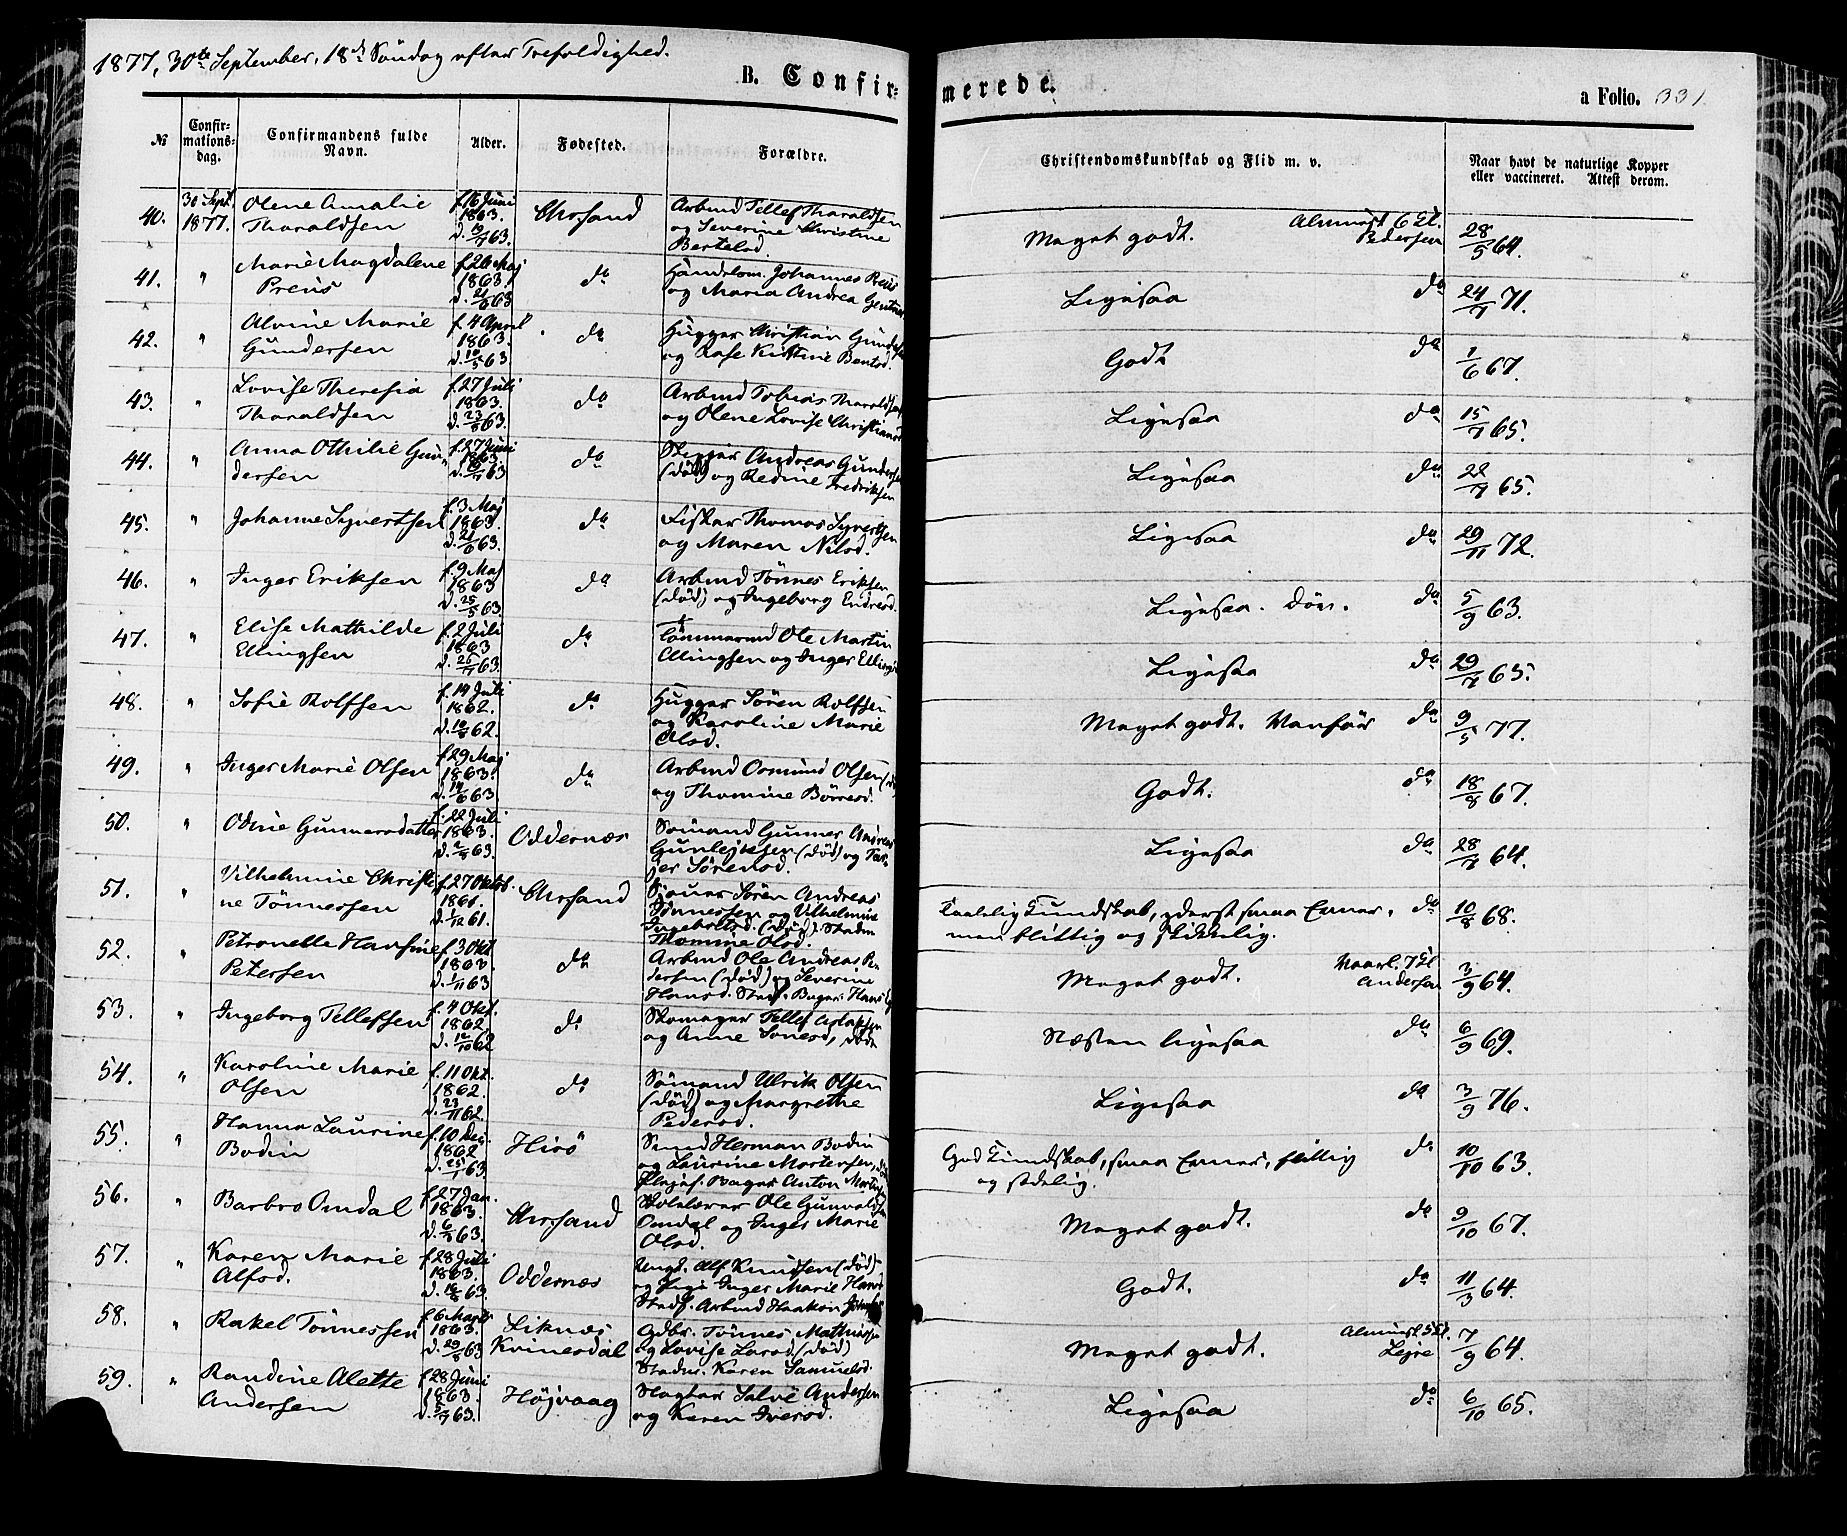 1877, 30te September, 18de Søndag efter Trefoldighed.
B. Confir-
merede.
a Folio. 331
№
Confir-
mations-
dag.
Confirmandens fulde
Navn.
Alder.
Fødested.
Forældre.
Christendomskundskab og Flid m. v.
Naar havt de naturlige Kopper
eller vaccineret. Attest derom.
40. 30 Sept. 1877. Olene Amalie Tharaldsen f. 16 Juni 1863. Chrsand
Arbmd Tellef Tharaldsen
og Severine Christine
Bertelsd.
Meget godt. Pedersen 28/5 64.
41. " Marie Magdalene Preus f. 26 Maj 1863. d. 21/6 63 do
Handelsm. Johannes Reus
og Maria Andrea
Ligesaa do 24/7 71.
42. " Alvine Marie Gundersen f. 4 April 1863. d. 10/5 63 do
Hugger Christian
og Kirstine Bentsd.
Godt do 1/6 67.
43. " Lovise Theresia Tharaldsen f. 27 Juli 1863. d. 23/8 63. do
Arbmd Tobias Tharaldsen
og Olene Lovise
Ligesaa do 15/7 65.
44. " Anna Othilie Gundersen f. 27 Juni 1863 do
Andreas Gundersen
(død) og Redine Fredriksen
Ligesaa do 22/7 65.
45. " Johanne Syvertsen f. 3 Maj 1863. d. 21/6 63. do
Fisker Thomas Syvertsen
og Maren Nilsd.
Ligesaa do 29/11 72.
46. " Inger Eriksen f. 9 Maj 1863 d. 25/5 63. do
Arbmd Tønnes Eriksen
(død) og Ingeborg Endresd.
Ligesaa. Døv. do 5/9 63.
47. " Elise Mathilde Ellingsen f. 2 Juli 1863 do
Tømmermd Ole Martin
Ellingsen og Inger
Ligesaa do 29/7 65.
48. " Sofie Rolfsen f. 14 Juli 1862. do
Hugger Søren Rolfsen
og Karoline Marie
Olsd.
Meget godt. Vanfør do 9/5 77.
49. " Inger Marie Olsen f. 29 Maj 1863. d. 14/6 63 do
Arbmd Osmund Olsen
og Thomine Børresd.
Godt. do 18/8 67.
50. " Odine Gunnersdatter f. 22 Juli 1863. Oddernæs
Sømand Gunner Andreas
Gunlejksen (død) og Tar-
jer Sørensd.
Ligesaa do 28/7 64.
51. " Vilhelmine Christine Tønnessen f. 27 Oktob. 1861. d. 1/12 61. Chrsand
Søren Andreas
Tønnessen og Vilhelmine
(død). Stedm
Olsd.
Kundskab, yderst smaa Evner,
men flittig og skikkelig.
do 10/8 68.
52. " Petronelle Hansine Petersen f. 3 Okt 1863 d. 1/11 63 do
Arbmd Ole Andreas Pe-
dersen (død) og Severine
Hansd.
Meget godt. Andersen 3/9 64.
53. " Ingeborg Tellefsen f. 4 Okt. 1862 d. 12/10 62 do
Skomager Tellef
og Anne
Næsten ligesaa do 6/9 69.
54. " Karoline Marie Olsen f. 11 Okt. 1862. d. 23/11 62. do
Sømand Ulrik Olsen
(død) og Margrethe
Pedersd.
Ligesaa do 3/9 76.
55. " Hanna Laurine Bodin f. 10 Dec. 1862 d. 25/1 63. Hirø
Smed Herman Bodin
og Laurine Mortensen,
Plejef. Bager Anton
God Kundskab, smaa Evner, flittig
og sædelig.
do 10/10 63.
56. " Barbro Omdal f. 27 Jan. 1863. Chrsand
Skolelærer Ole
Omdal og Inger Marie
Olsd.
Meget godt. do 9/10 67.
57. " Karen Marie Alfsd. f. 28 Juli 1863. Oddernæs
Ungk. Alf Knudsen (død)
og Inger Marie
Stedf. Arbmd Haakon
Godt. do 11/3 64.
58. " Rakel Tønnessen f. 6 Marts 1863. Liknæs Kvinesdal
Gdbr. Tønnes Mathiassen
og Lovise Larsd. (død)
Stedm. Karen Samuelsd.
Meget godt. Lejre 7/9 64.
59. " Randine Alette Andersen f. 28 Juni 1863. d. 5/7 63. Højvaag
Slagter Salve Andersen
og Karen Iversd.
Ligesaa do 6/10 65.